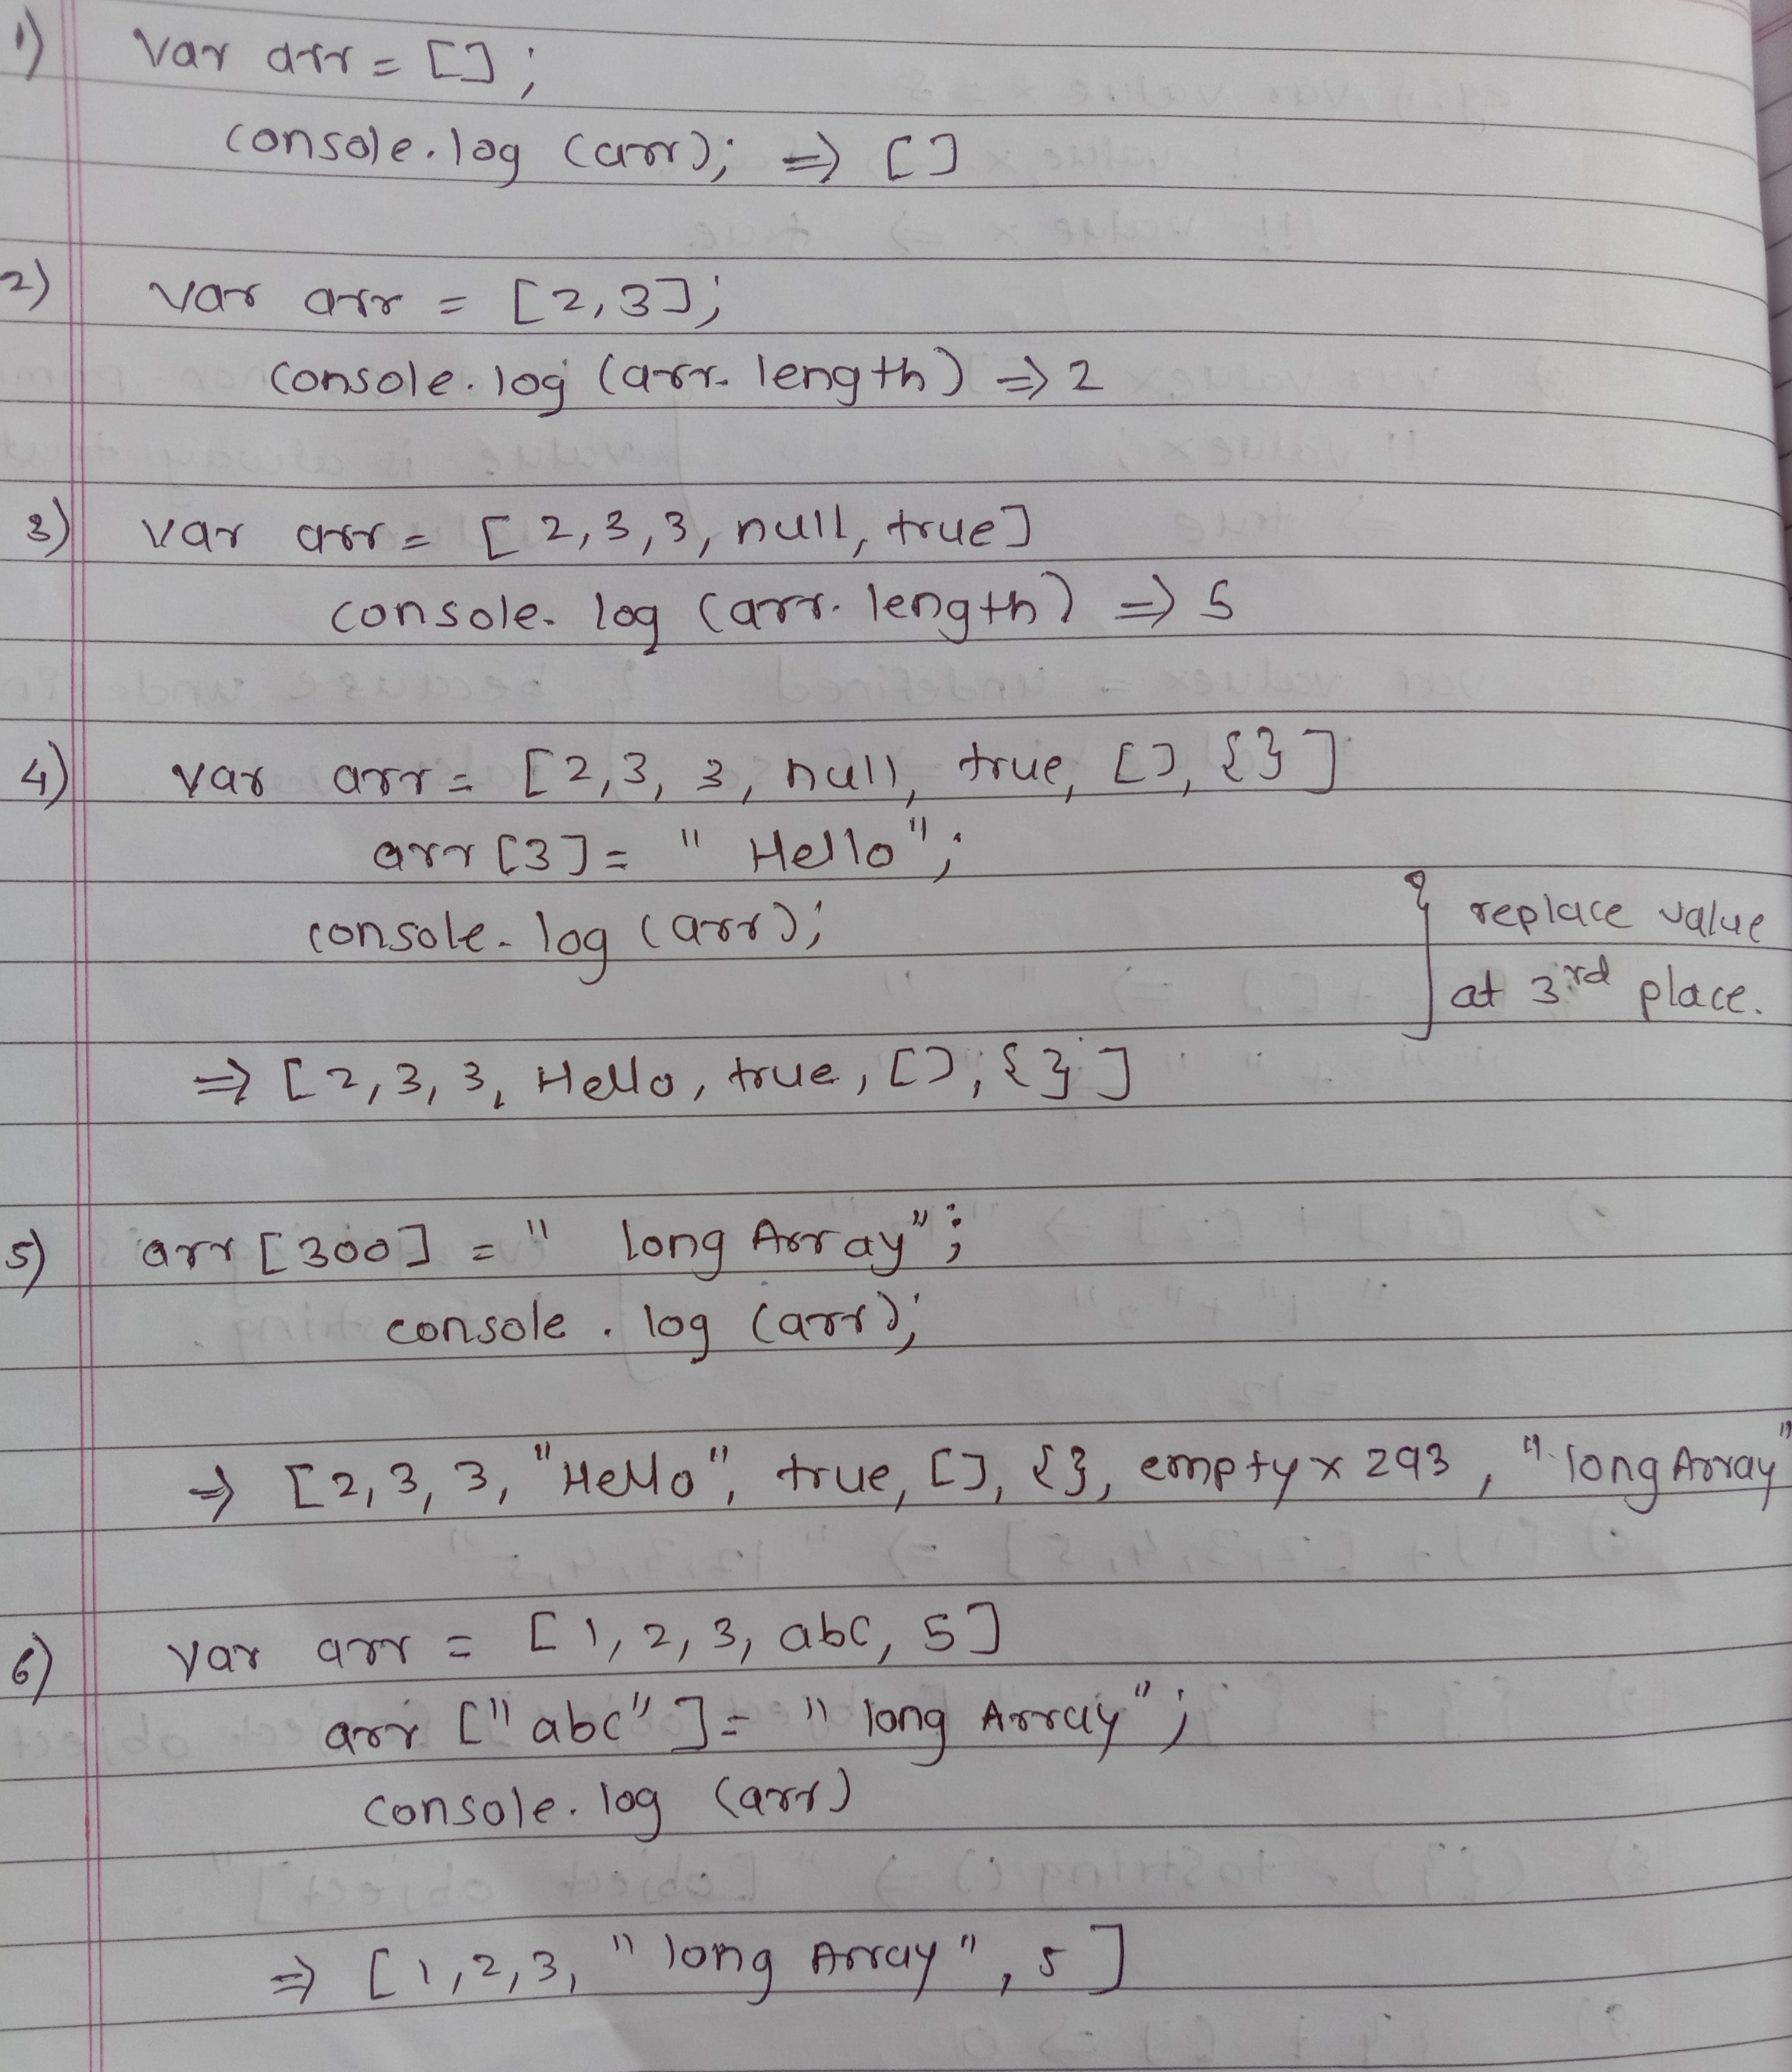 1) var arr = [];
console.log (arr); ⇒ []
2) var arr = [2,3];
console.log (arr.length) ⇒ 2
3) var arr = [2,3,3, null, true]
console.log (arr.length) ⇒ 5
4) var arr = [2,3, 3, null, true, [], {}]
arr [3] = " Hello";
console.log (arr);
} replace value
at 3rd place.
⇒ [2,3,3, Hello, true, [], {}]
5) arr [300] = " long Array";
console.log (arr);
⇒ [2,3,3, "Hello", true, [], {}, empty x 293, "long Array"
6) var arr = [1,2,3, abc, 5]
arr ["abc"] = " long Array";
console.log (arr)
⇒ [1,2,3, " long Array", 5]